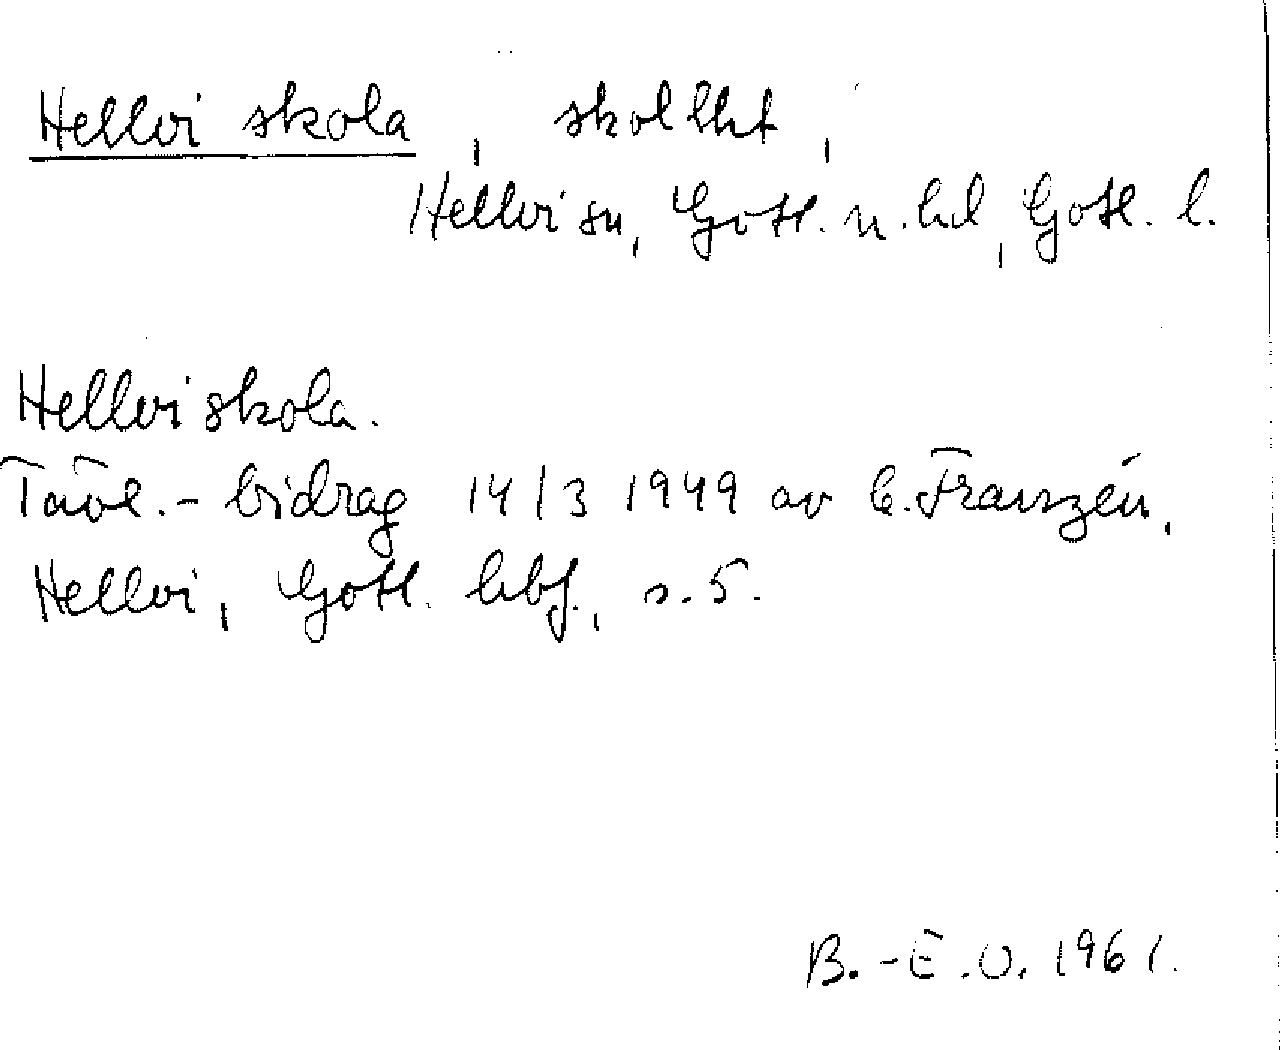 Hellvi skola, skol bht,
Hellvi sn, Gotl. n. hd, Gotl. l.
Hellvi skola.
Tävl.-bidrag 14/3 1949 av E. Franzén,
Hellvi, Gotl. hbf., s. 5.
B.-E.O. 1961.